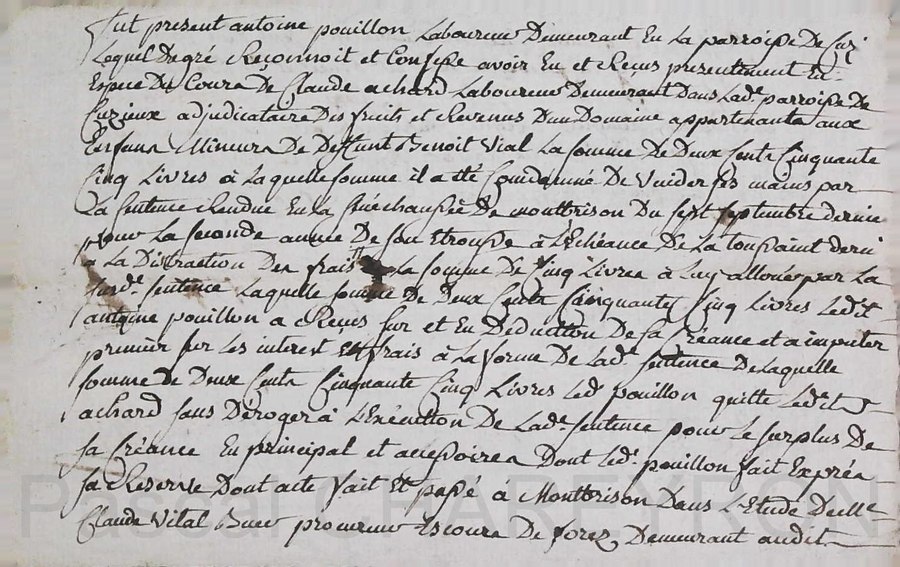 fut present antoine pouillon Laboureur Demeurant En La parroisse De Cuzi
Lequel Degré Reconnoit et Confesse avoir Eu et Reçus presentement En
Espece Du Cours De Claude achard Laboureur Demeurant Dans Lade. parroisse De
Cuzieux adjudicataire Des fruits et Revenus Dun Domaine appartenants aux
Enfans Mineurs De Deffunt Benoit Vial La somme De Deux Cents Cinquante
Cinq Livres a Laquelle somme il a été Condamné De Vuider ses mains par
La sentence Rendue En La senechaussée De montbrison Du sept septembre dernier
pour La seconde année De son Etrousse à L'Echéance De La toussaint derni
a La Distraction Des frais La somme De Cinq Livres a Luy allouée par La
susde. sentence Laquelle somme De Deux Cents Cinquante Cinq Livres Ledit
antoine pouillon a Reçus sur et En Deduction De sa Créance et a imputer
premier sur Les interest Et frais à La forme De Lade. sentence De Laquelle
somme De Deux Cents Cinquante Cinq Livres Led. pouillon quitte Ledit
achard sans Déroger à L'Exécution De Lade. sentence pour Le surplus De
sa Créance En principal et accessoires Dont Led. pouillon fait Exprès
sa Reserve Dont acte fait Et passé à Montbrison Dans L'Etude De Me
Claude Vital procureur Es cours De forez Demeurant audit
Pascal CHAREYRON